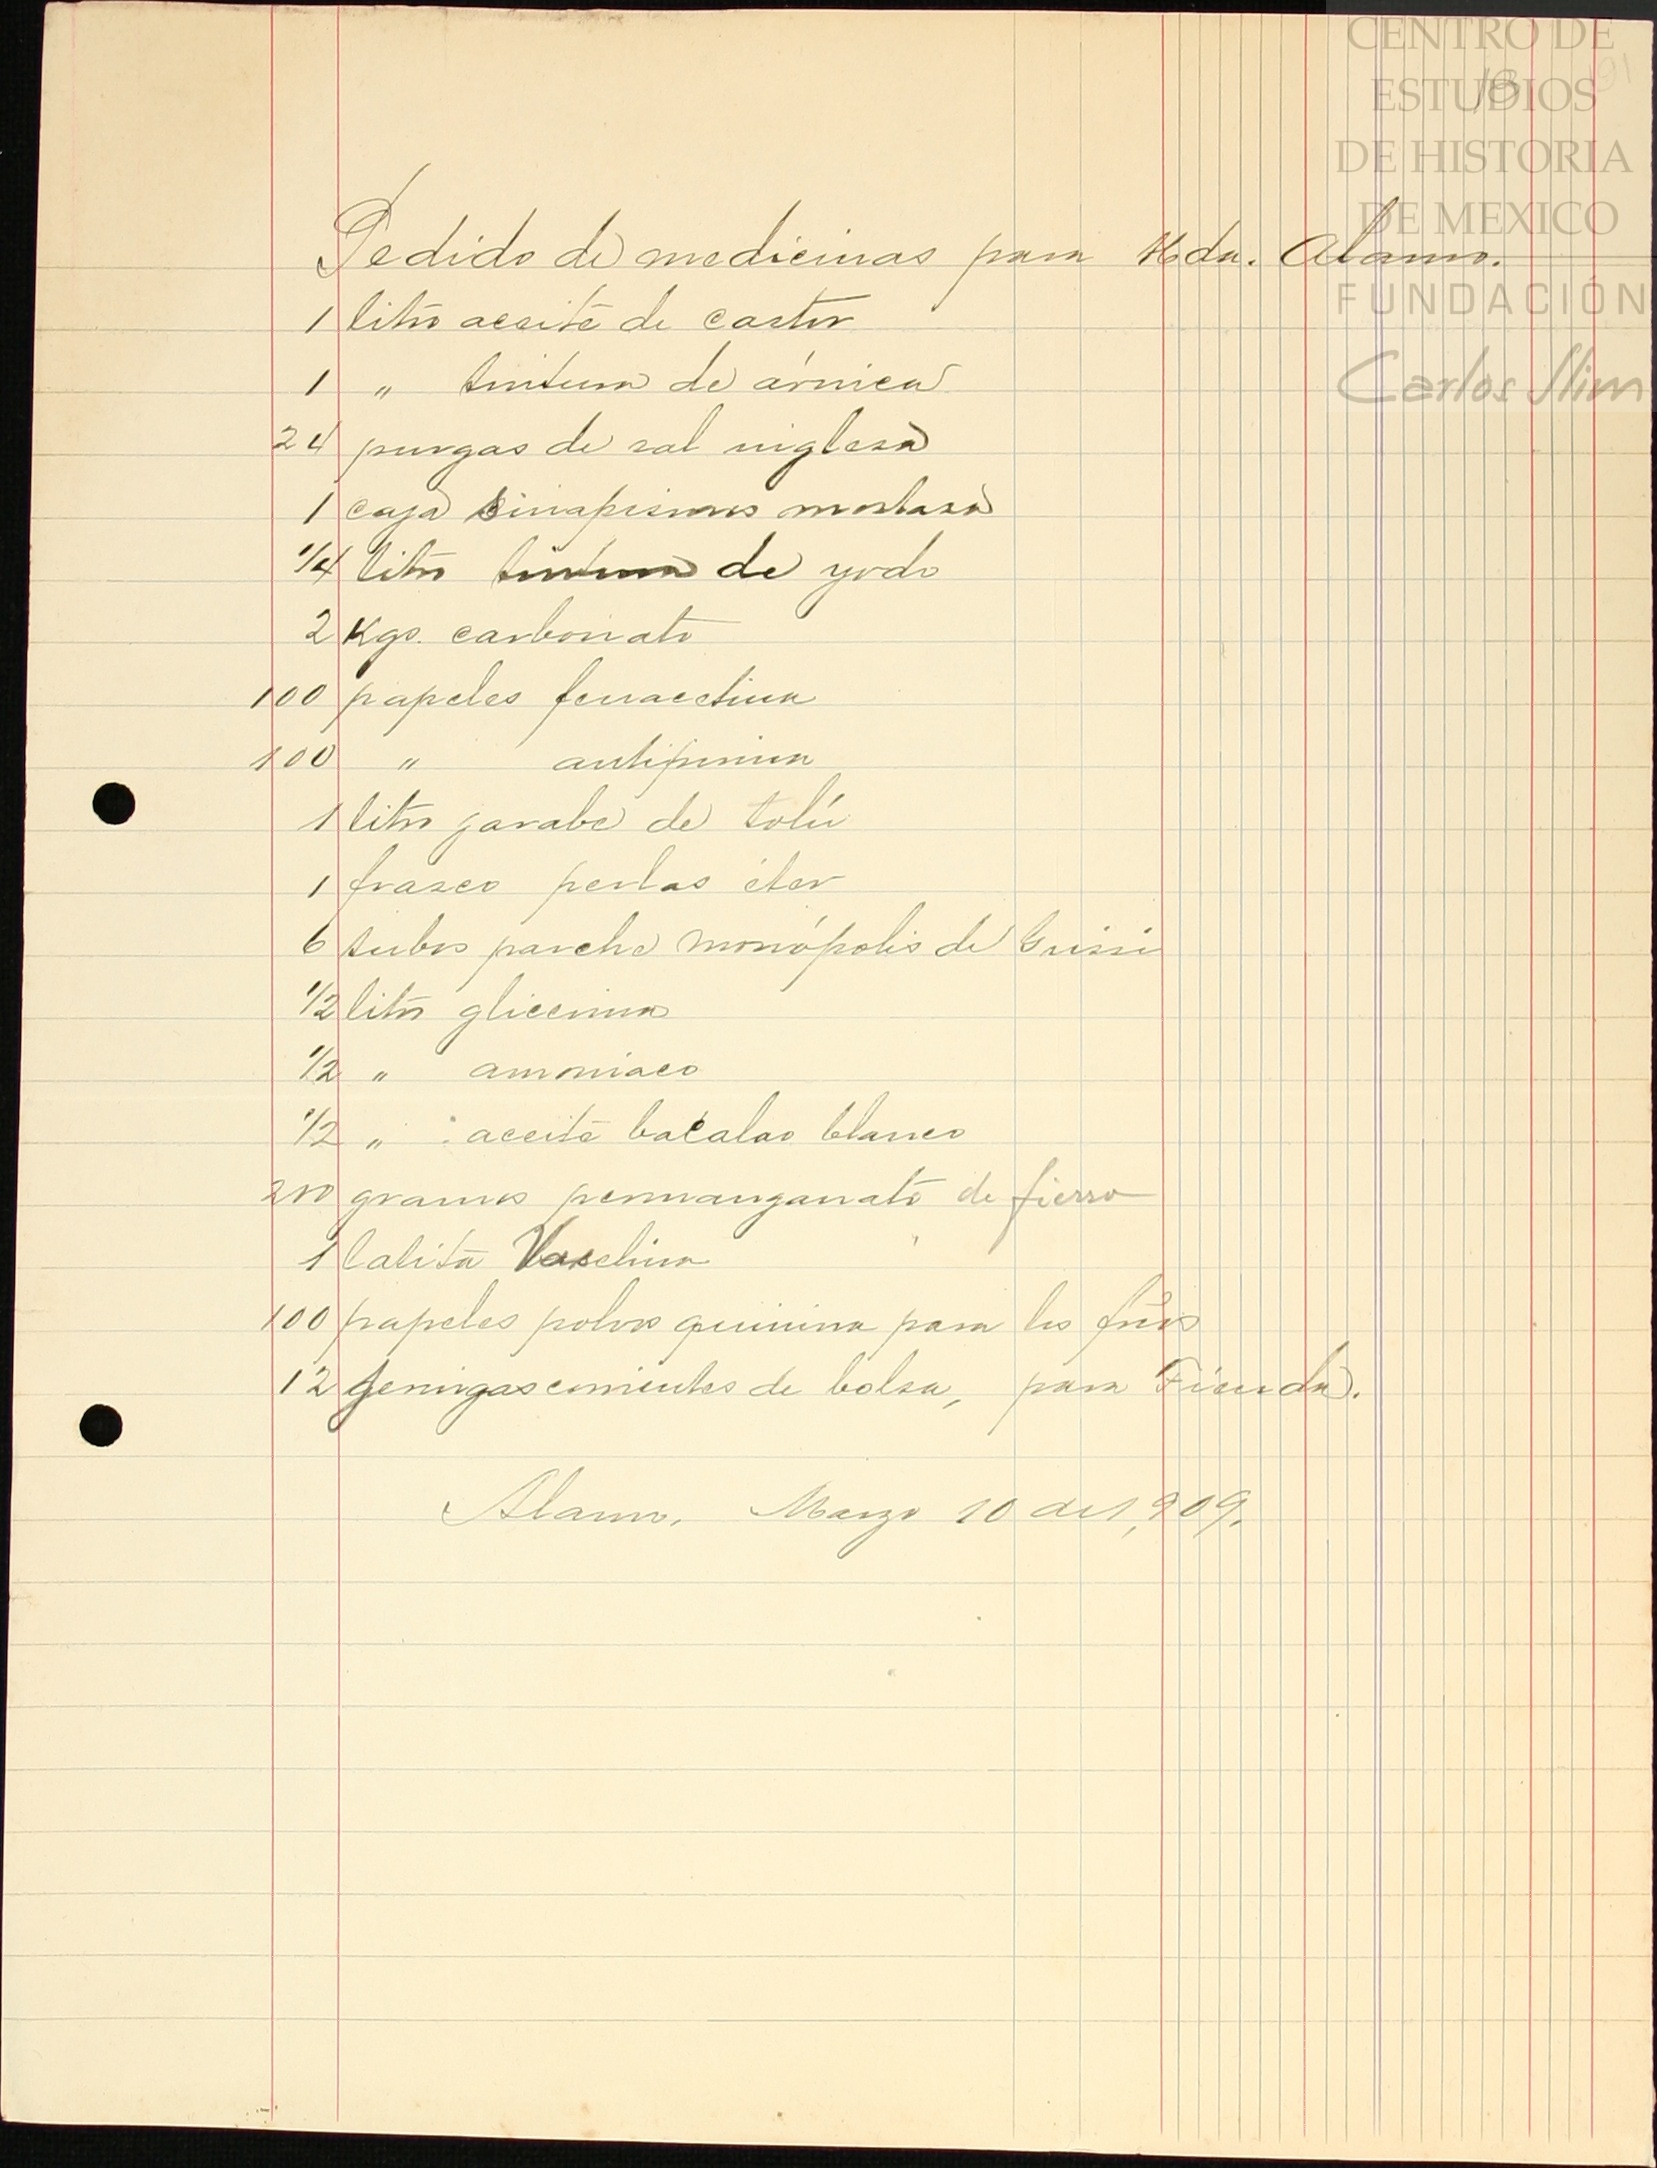 CENTRO DE
ESTUDIOS
DE HISTORIA
DE MEXICO
FUNDACIÓN
Carlos Slim
18
191
Pedido de medicinas para Hda. Alamo.
1 litro aceite de castor
1 " tintura de árnica
24 purgas de sal inglesa
1 caja sinapismos mostasa
1/4 litro tintura de yodo
2 Kgs. carbonato
100 papeles fenacetina
100 " antipirina
1 litro jarabe de tolú
1 frasco perlas éter
6 tubos parche monópolis de Grisi
1/2 litro glicerina
1/2 " amoniaco
1/2 " aceite bacalao blanco
200 gramos permanganato de fierro
1 latita Vaselina
100 papeles polvos quinina para los fríos
12 geringas corrientes de bolsa, para Tienda.
Alamo, Marzo 10 de 1,909.